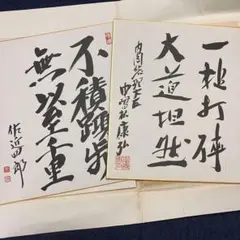 一槌打砕
大道坦然
内閣総理大臣
中曽根康弘
不積蹞歩
無以至千里
佐近四郎